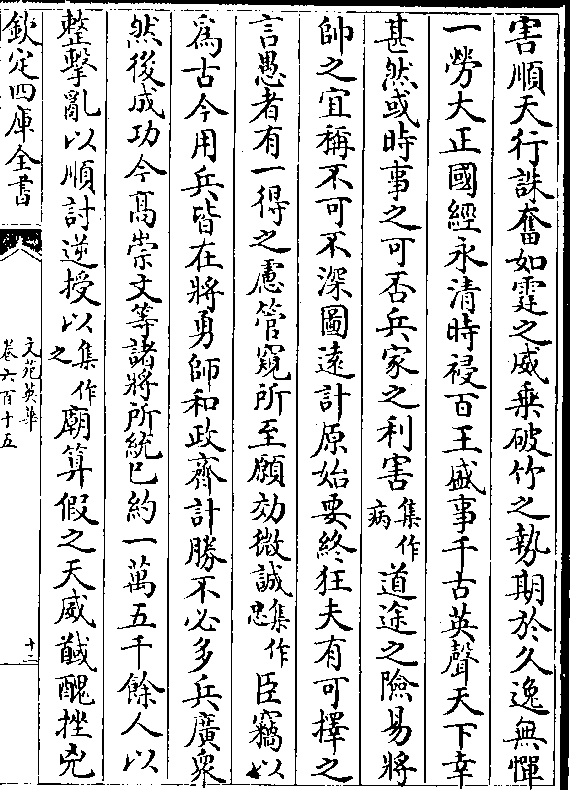 害順天行誅奮如霆之威乗破竹之埶期於久逸無憚
一勞大正國經永清時祲百王盛事千古英聲天下幸
甚然或時事之可否兵家之利害集作病道途之險易將
帥之宜稱不可不深圖遠計原始要終狂夫有可擇之
言愚者有一得之慮管窺所至願効微誠集作忠臣竊以
爲古今用兵皆在將勇師和政齊計勝不必多兵廣衆
然後成功今髙崇文等諸將所統已約一萬五千餘人以
整擊亂以順討逆授以集作之廟算假之天威馘醜挫兇
欽定四庫全書
文苑英華
卷六百十五
十三